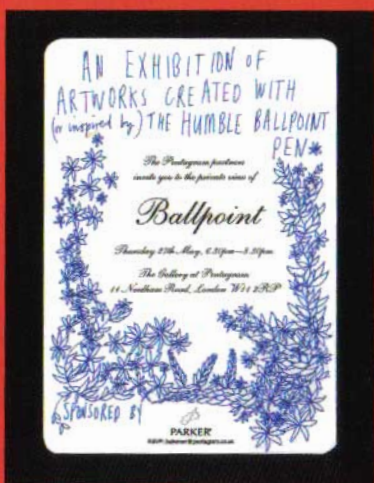 AN EXHIBITION OF
ARTWORKS CREATED WITH
(or inspired by) THE HUMBLE BALLPOINT
PEN*
The Pentagram partners
invite you to the private view of
Ballpoint
Thursday 27th May, 6.30pm–8.30pm
The Gallery at Pentagram
11 Needham Road, London W11 2RP
*SPONSORED BY
PARKER
RSVP: